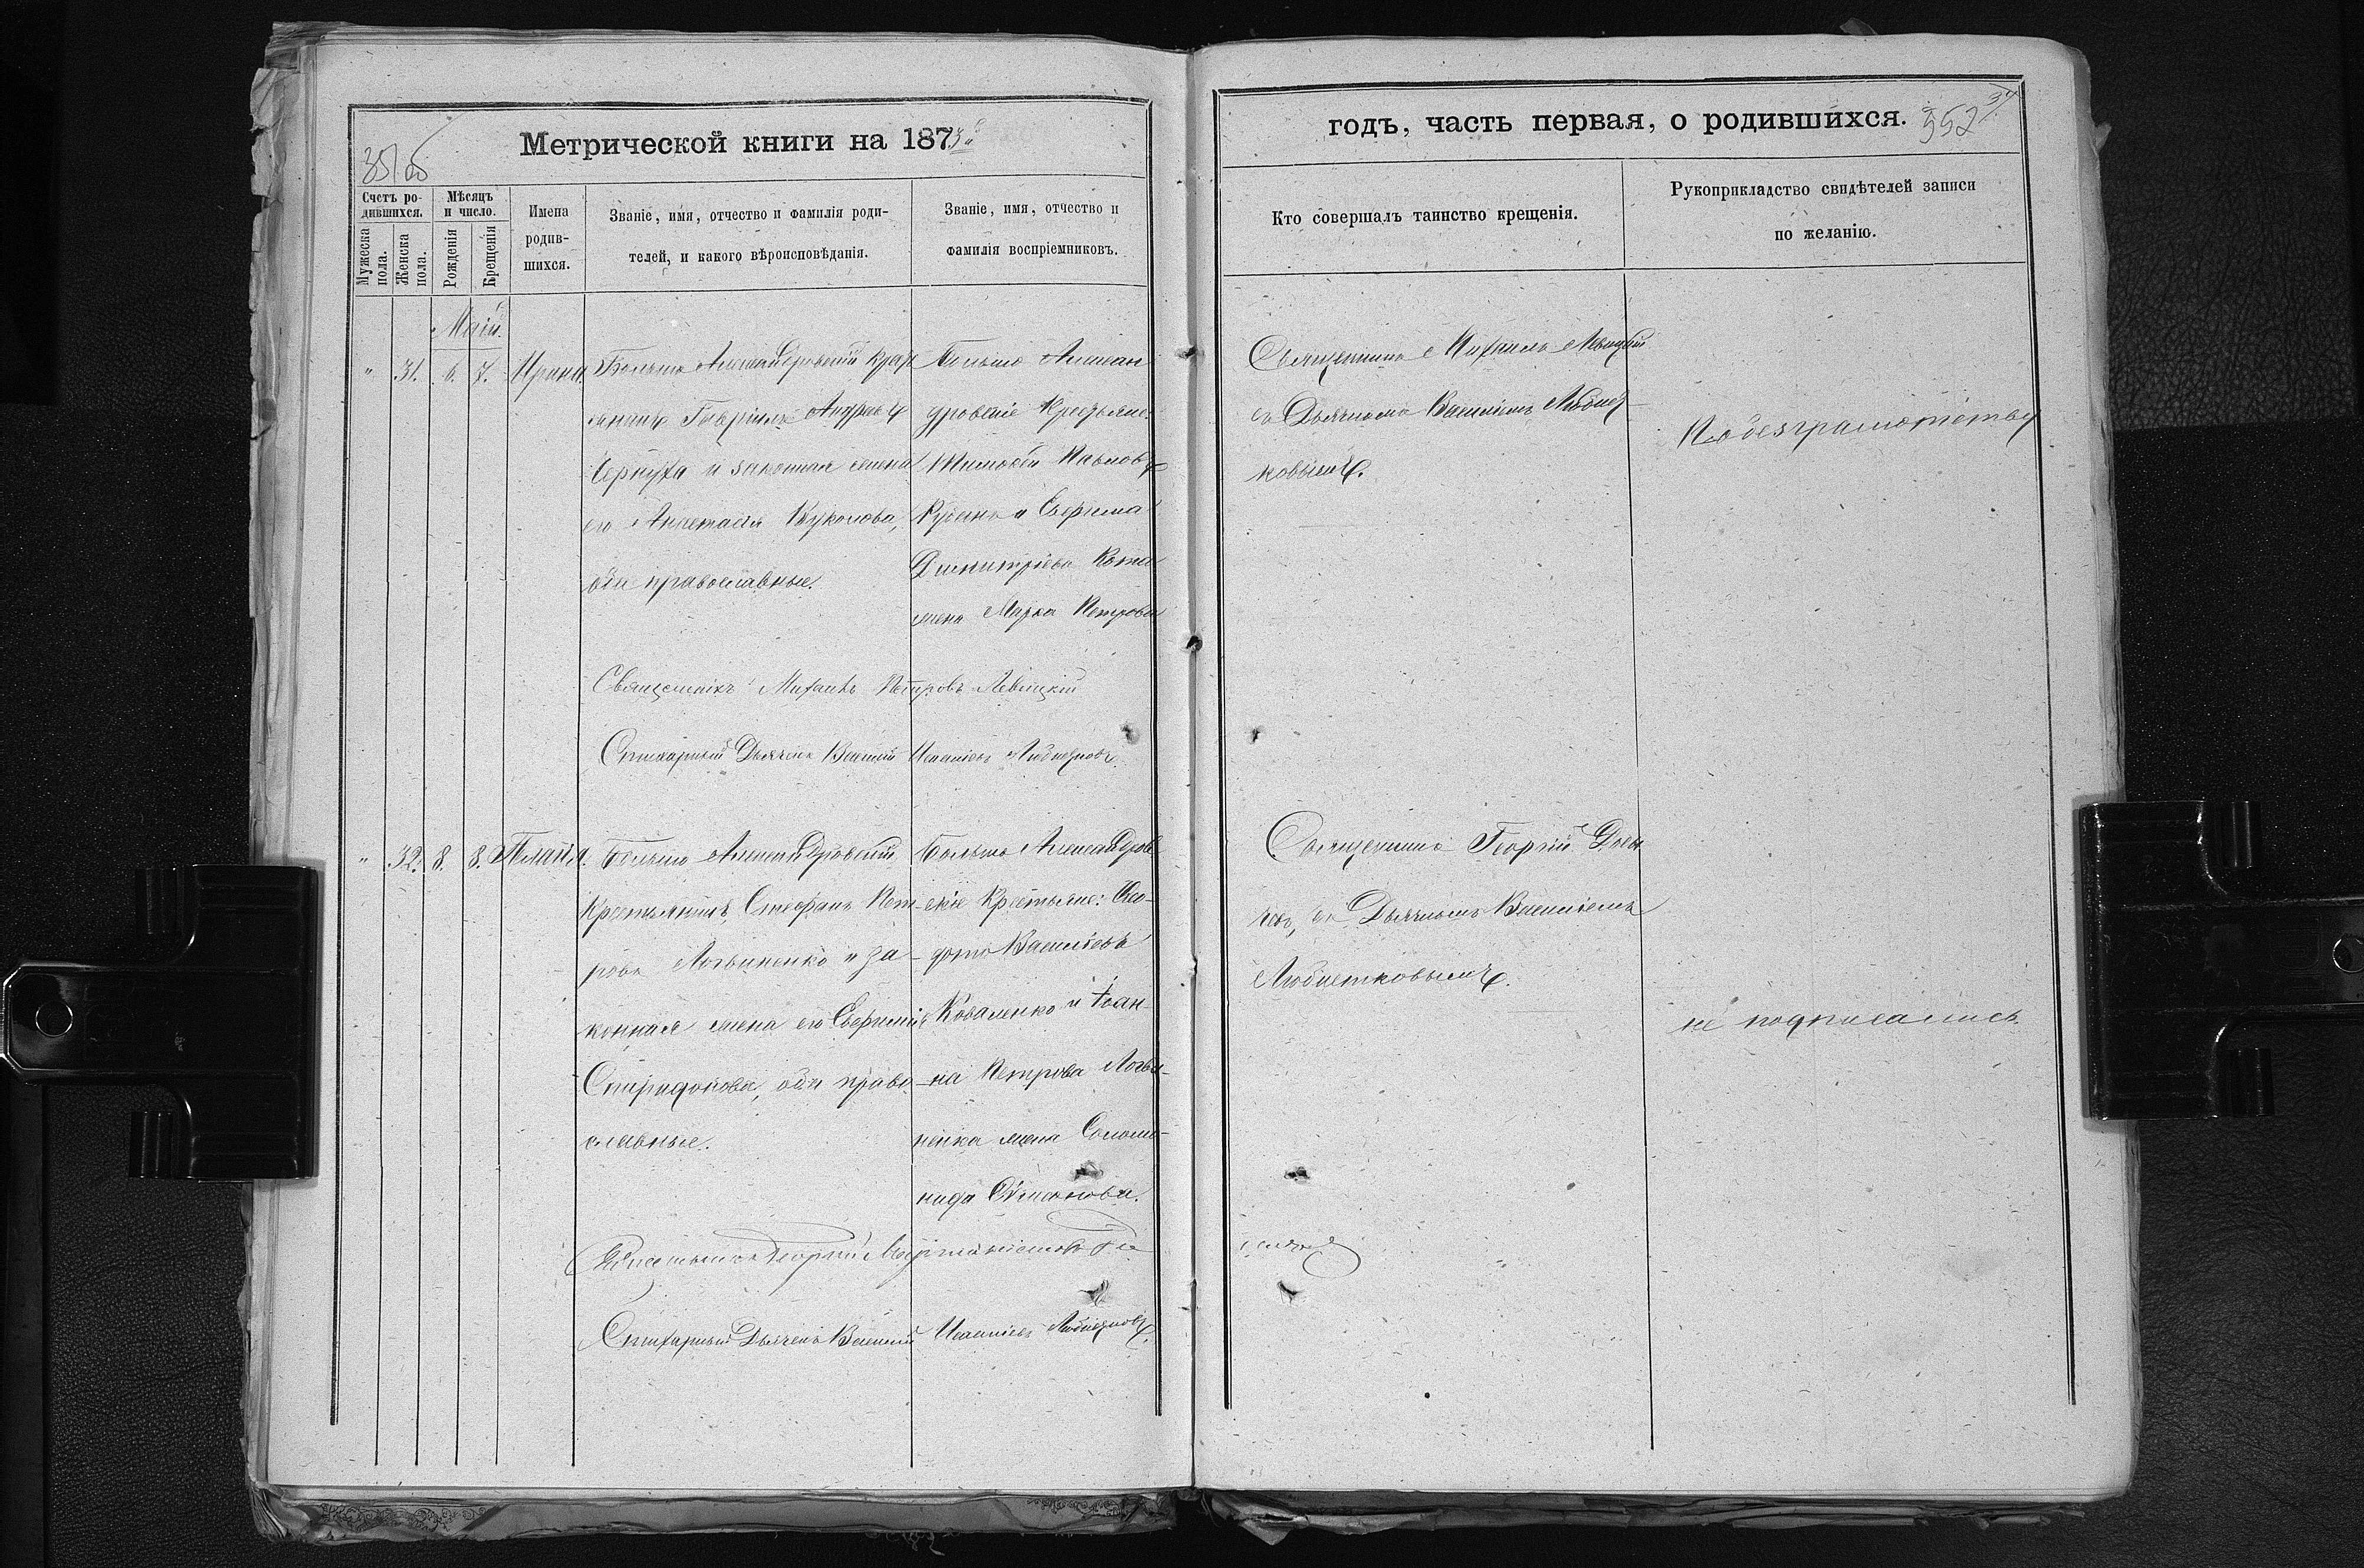 Метрической книги на 1873й
годъ, часть первая, о родившихся. 352
Счетъ родившихся.
Мужеска пола.
Женска пола.
Мѣсяцъ и число.
Рожденія
Крещенія
Имена родившихся.
Званіе, имя, отчество и фамилія родителей, и какого вѣроисповѣданія.
Званіе, имя, отчество и фамилія воспріемниковъ.
Кто совершалъ таинство крещенія.
Рукоприкладство свидѣтелей записи по желанію.
Май.
" 31. 6. 7. Ирина.
Больше Александровскій крестьянинъ Гавріилъ Андреевъ
Чернуха и законная жена
его Анастасія,
оба православные.
Больше Александровскіе крестьяне:
Тимофей Павловъ
и Евфимія
Димитріева
жена Марка Петрова
Священникъ Михаилъ Левицкій
съ Дьячкомъ Василіемъ Любиет-
ковымъ.
По безграмотству
Священникъ Михаилъ Петровъ Левицкій
Стихарный Дьячекъ Василий Любиетковъ.
" 32. 8. 8. Пелагія.
Больше Александровскій
Крестьянинъ Стефанъ Пет-
ровъ Логвиненко и за-
конная жена его Евфимія
Спиридонова, оба право-
славные.
Больше Александров-
скіе Крестьяне: Ѳео-
дотъ Васильевъ
Коваленко и Іоан-
на Петрова Логви-
ненка жена Соломо-
нида
Священникъ Георгій
съ Дьячкомъ Василіемъ
Любиетковымъ.
не подписались.
Священникъ Георгій
Стихарный Дьячекъ Василий Любиетковъ.